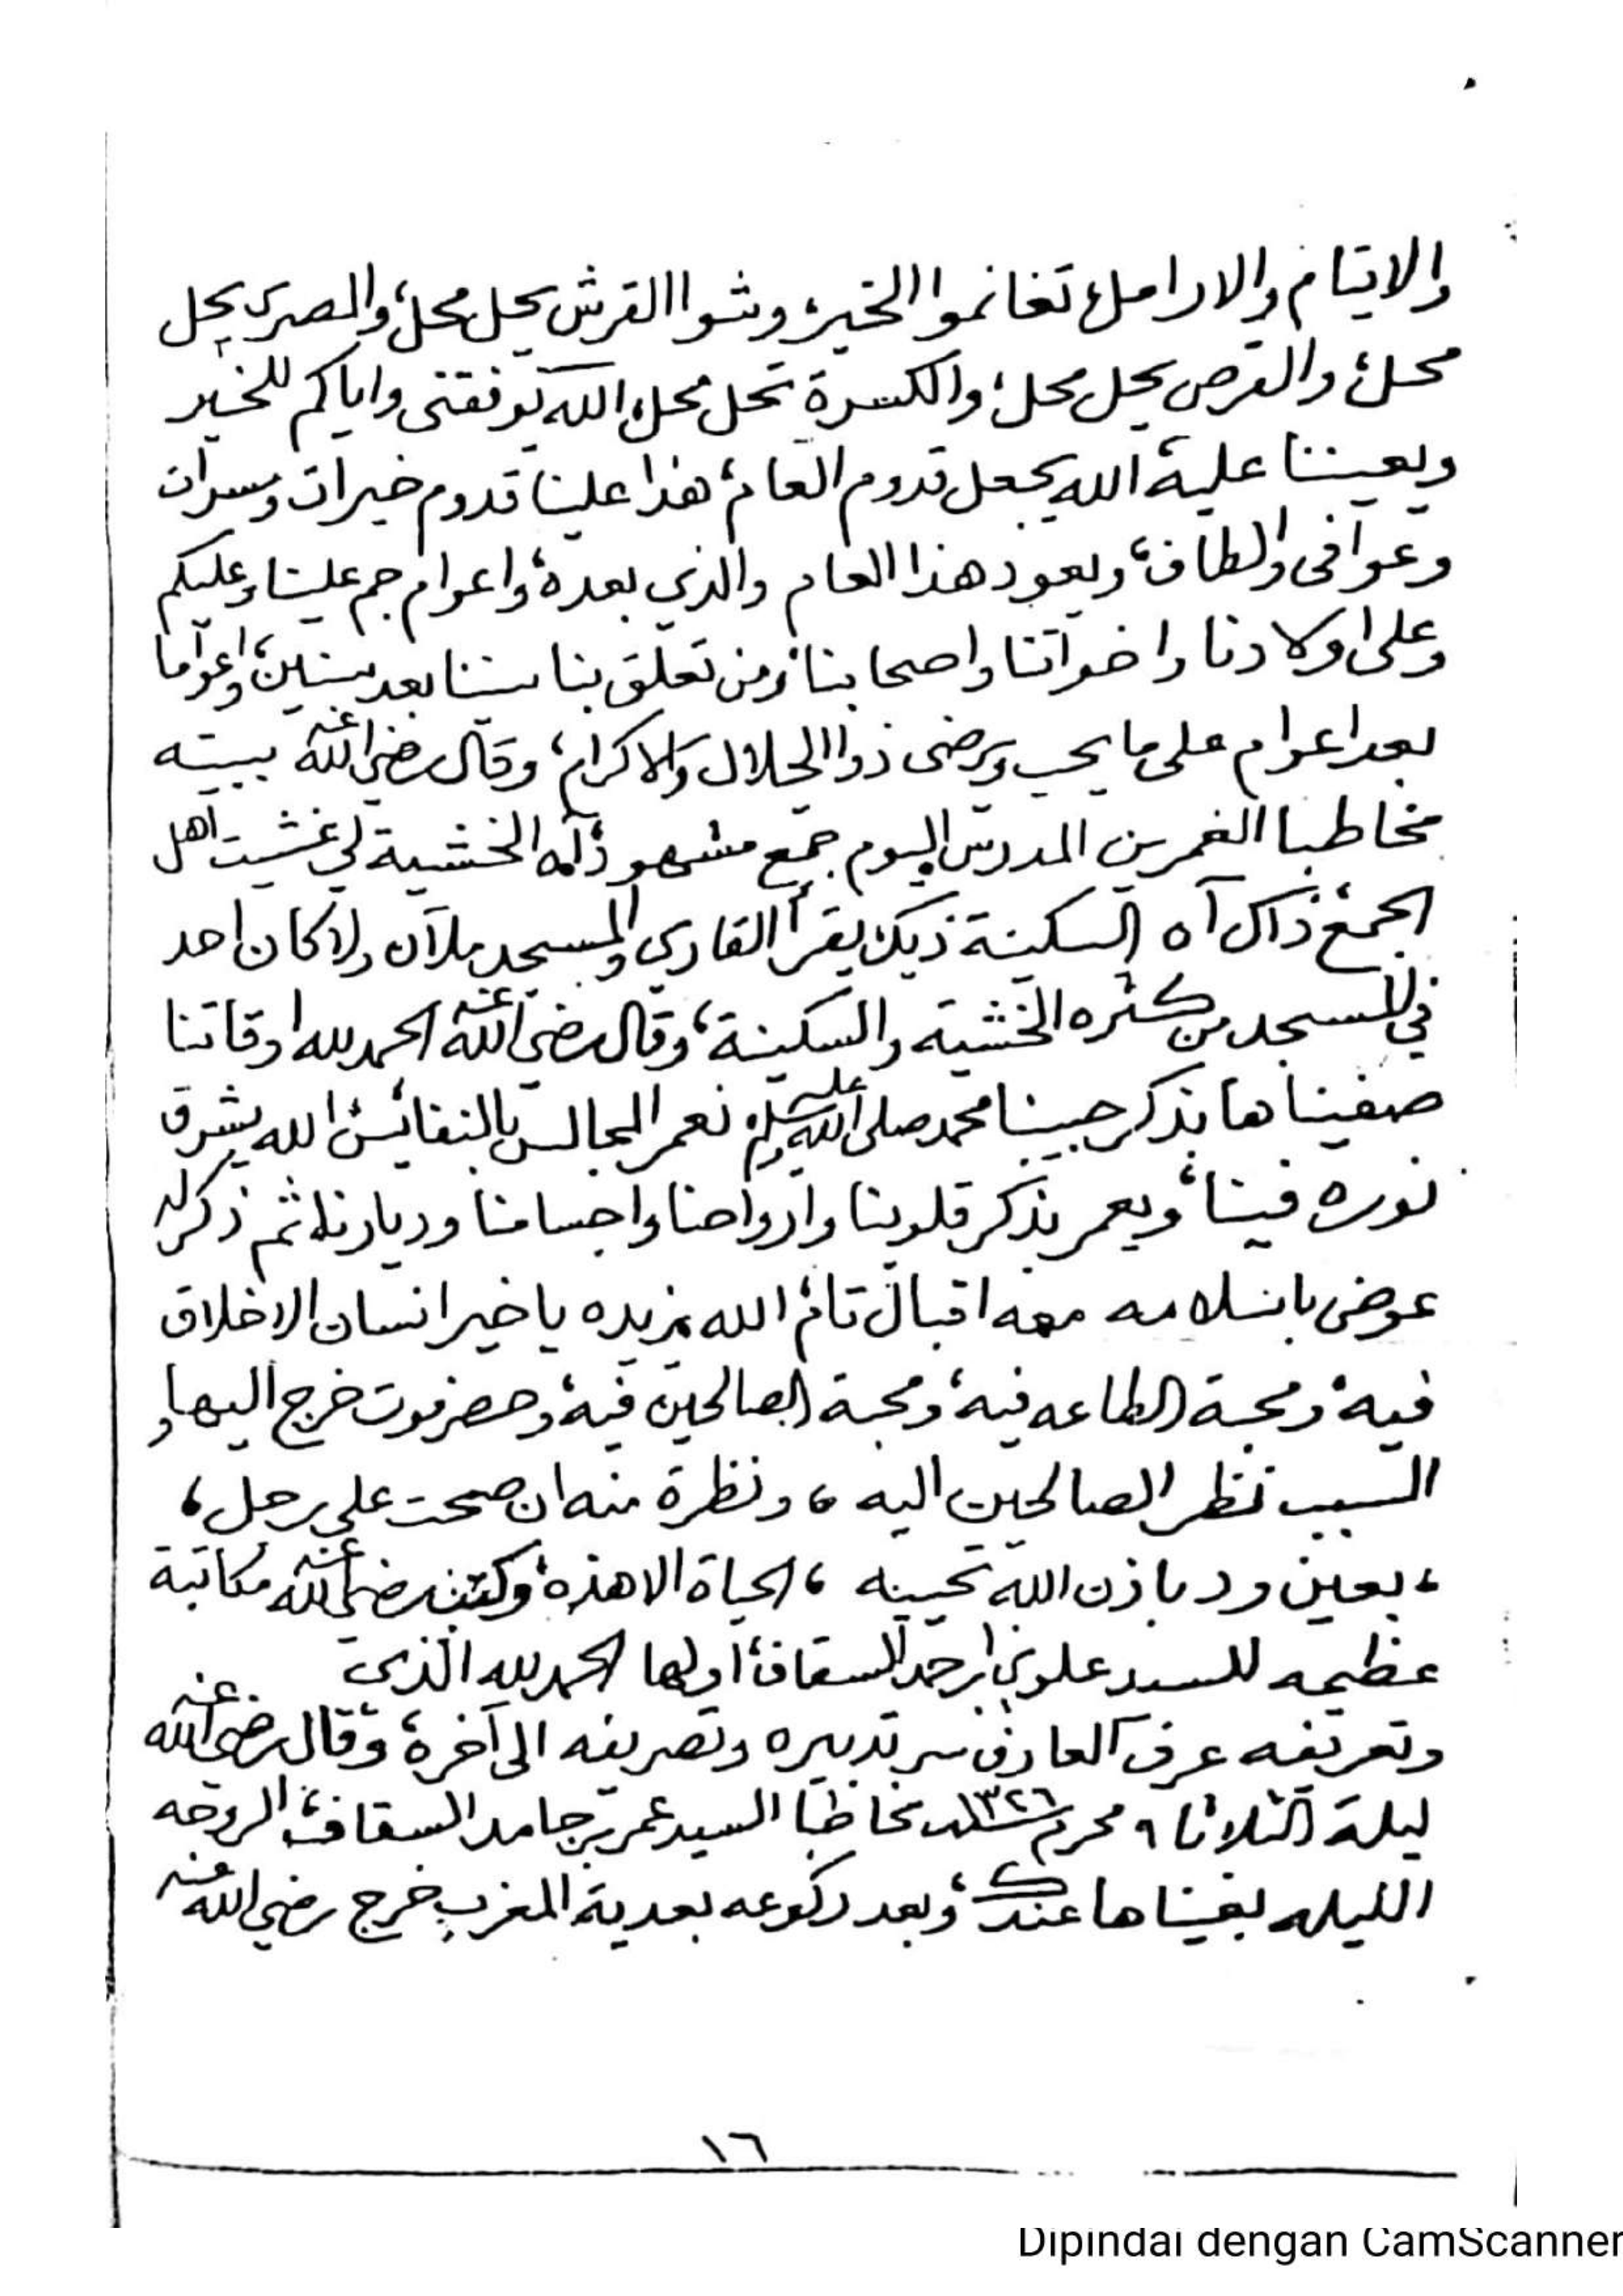 والايتام والارامل، تغانموا الخير، وشوا القرش يحل محل، والمصرى يحل
محل، والقرص يحل محل، والكسرة تحل محل، الله يوفقنى واياكم للخير
ويعيننا عليه، الله يجعل قدوم العام، هذا علينا قدوم خيرات ومسرات
وعوافى والطاف، ويعود هذا العام والذي بعده، واعوام جم علينا وعليكم
وعلى اولادنا واخواتنا واصحابنا ومن تعلق بنا سننا بعد سنين، واعواما
بعد اعوام على ما يحب ويرضى ذوا الجلال والاكرام، وقال رضي الله عنه ببيته
مخاطبا المدرس اليوم جمع مشهود، آه الخشية لي غشيت اهل
الجمع ذاك آه السكينة ذيك يقرأ القاري والمسجد ملآن ولا كان احد
في المسجد من كثره الخشيه والسكينة، وقال رضي الله عنه الحمد لله اوقاتنا
صفيناها بذكر حبيبنا محمد صلى الله عليه وسلم نعمر المجالس بالنفائس، الله يشرق
نوره فينا، ويعمر بذكر قلوبنا وارواحنا واجسامنا وديارنا، ثم ذكر له
عوض بانسلامه معه اقبال تام، الله يزيده يا خير انسان الاخلاق
فيه، ومحبة الطاعه فيه، ومحبة الصالحين فيه، وحضرموت خرج اليها و
السبب نظر الصالحين اليه ، ونظرة منه ان صحت على رجل ،
، بعين ود باذن الله تحييه ، الحياة الا هذه، وكتب رضي الله عنه مكاتبة
عظيمه للسيد علوي بن احمد السقاف، اولها الحمد لله الذى
وتعريفه عرف العارف سر تدبيره وتصريفه الى آخرة، وقال رضي الله عنه
ليلة الثلاثا ٩ محرم سنة ١٣٢٦هـ مخاطبا السيد عمر بن حامد السقاف، الروحه
الليله بغيناها عندك، وبعد ركوعه بعدية المغرب خرج رضي الله عنه
١٦
Dipindai dengan CamScanner